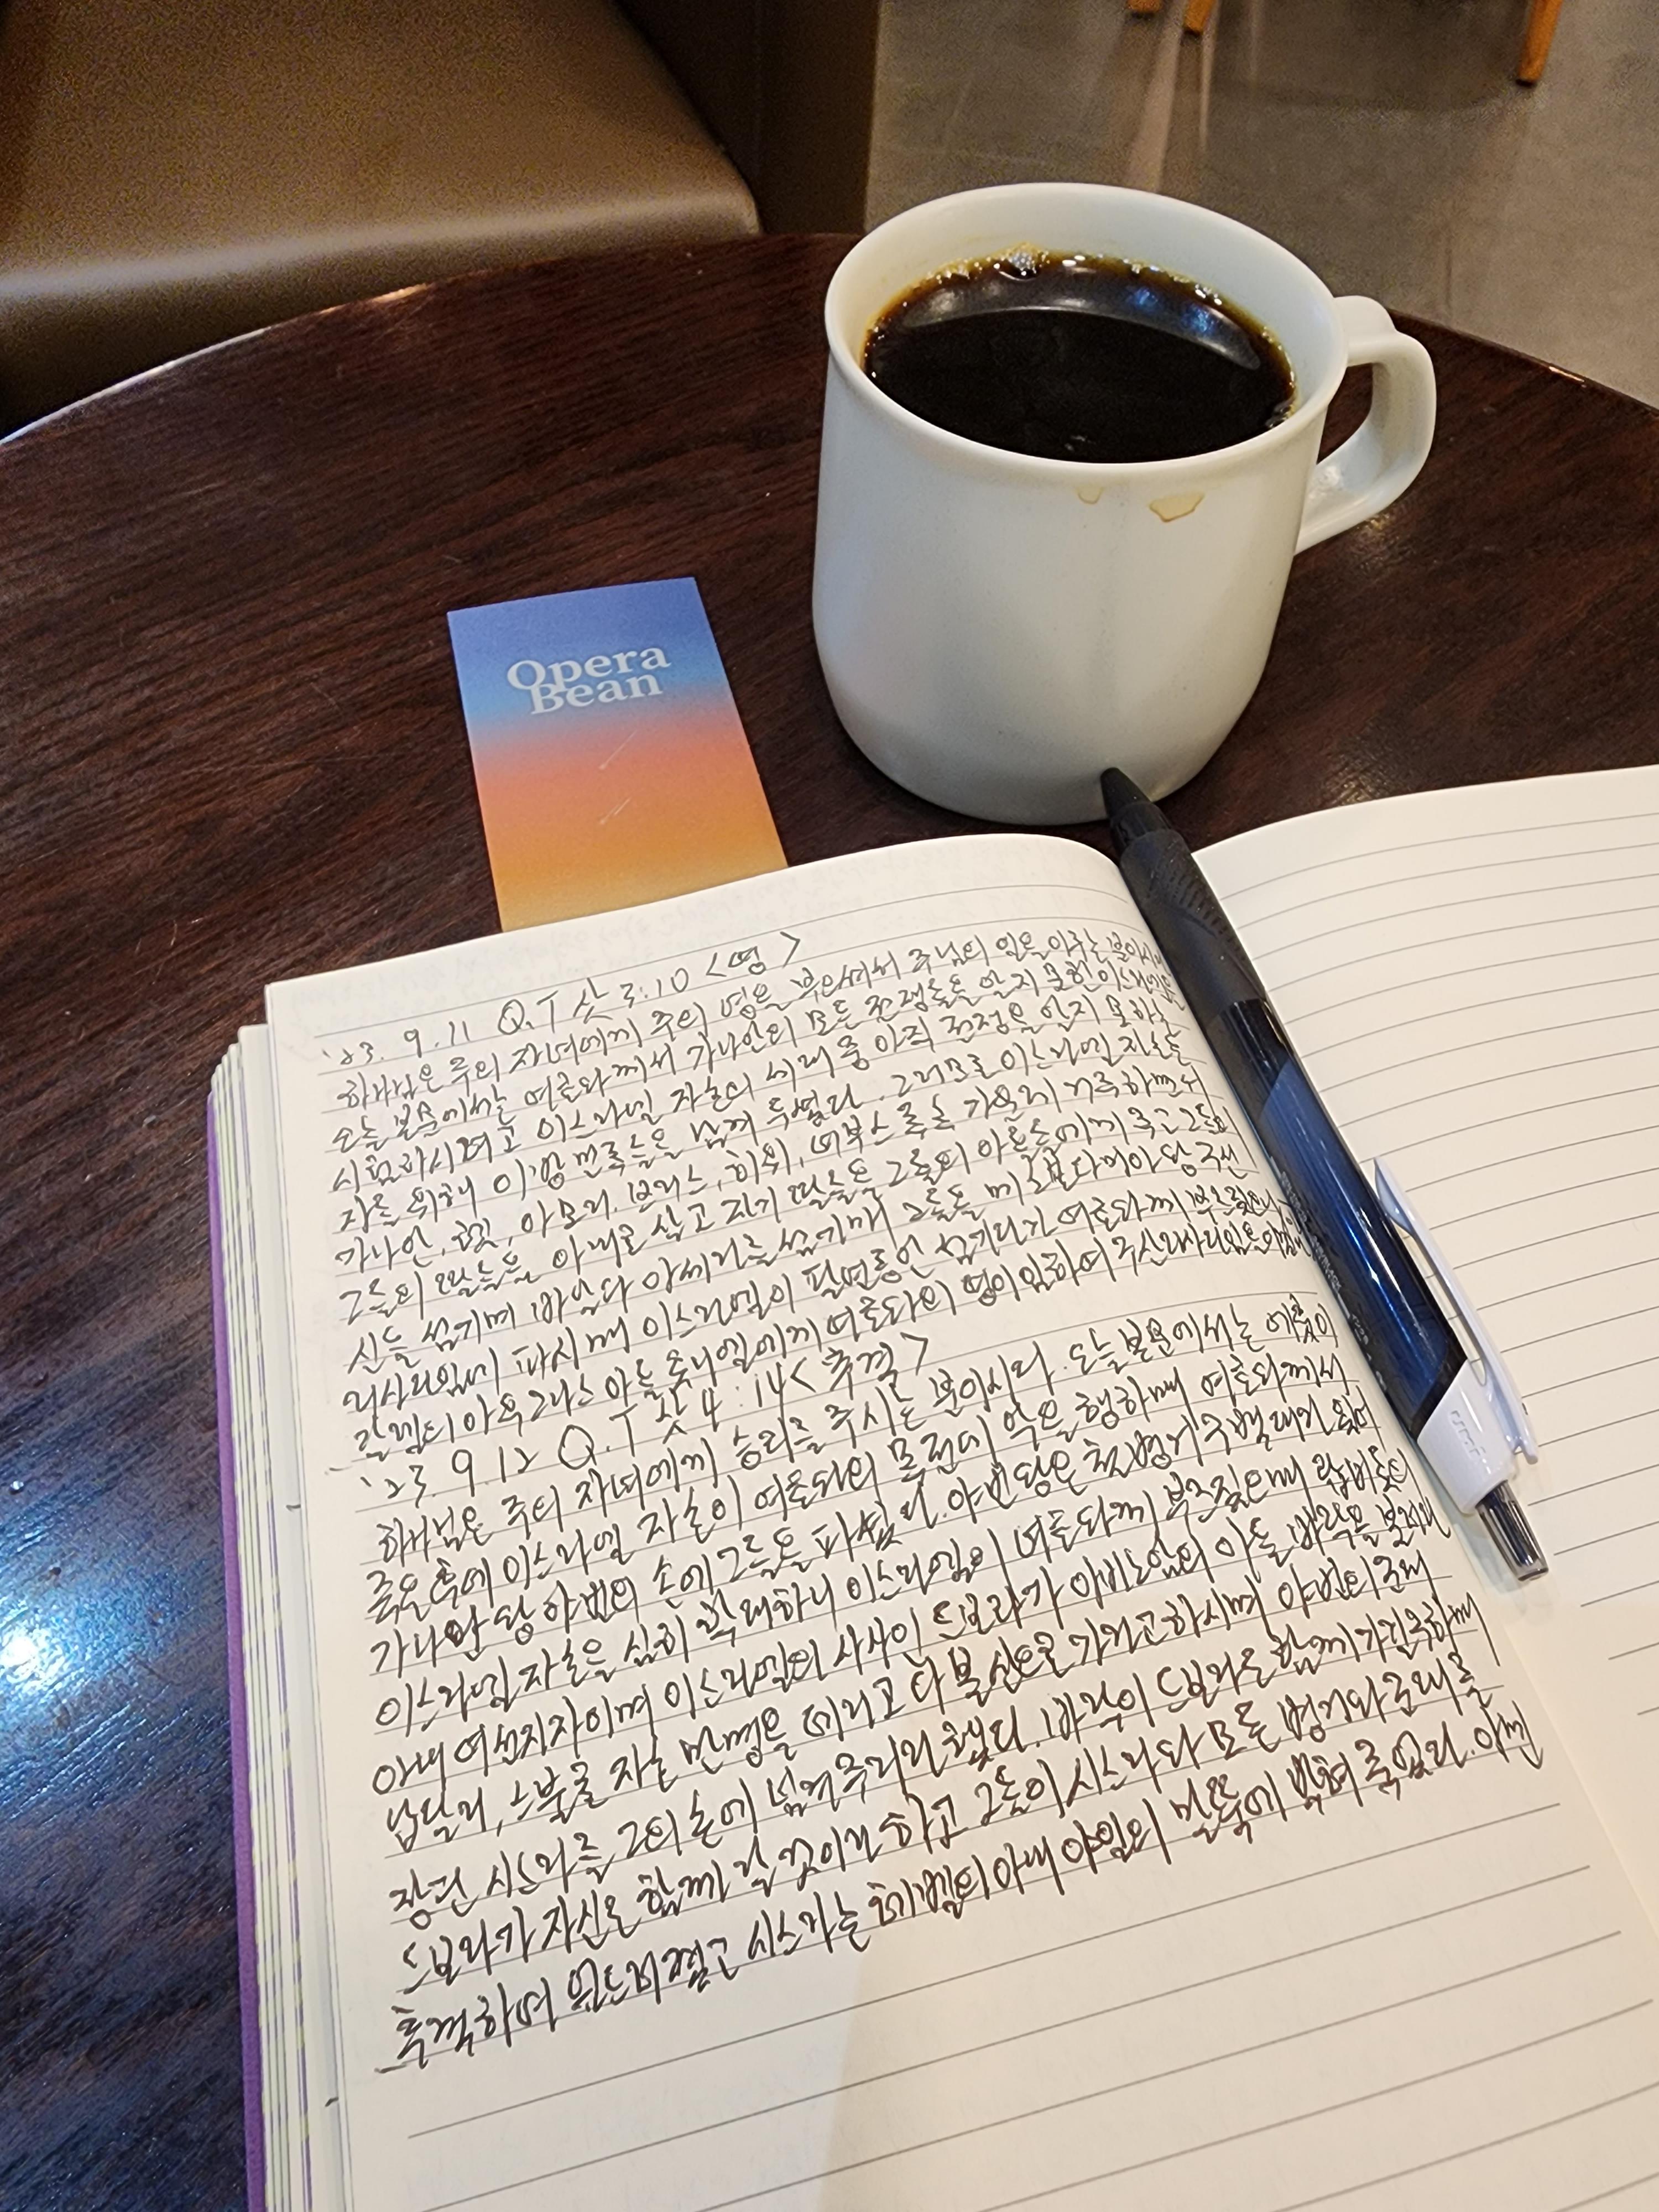 Opera
Bean
'23. 9. 11 Q.T 삿 3:10 <영>
하나님은 주의 자녀에게 주의 영을 부으셔서 주님의 일을 이루는 분이시다.
오늘 본문에서는 여호와께서 가나안의 모든 전쟁들을 알지 못한 이스라엘을
시험하시려고 이스라엘 자손의 세대 중 아직 전쟁을 알지 못하는
자를 위해 이방 민족들을 남겨 두셨다. 그러므로 이스라엘 자손은
가나안, 헷, 아모리, 브리스, 히위, 여부스 족속 가운데 거주하면서
그들의 딸들을 아내로 삼고 자기 딸들은 그들의 아들들에게 주고 그들의
신들 섬기며 바알과 아세라를 섬기매 그들을 메소보다미아 왕 구산
리사다임에 파시매 이스라엘이 팔년동안 섬기다가 여호와께 부르짖으매
갈렙의 아우 그나스 아들 옷니엘에게 여호와의 영이 임하여 구산 리사다임을
'23. 9. 12 Q.T 삿 4:14 <추격>
하나님은 주의 자녀에게 승리를 주시는 분이시다. 오늘 본문에서는 에훗이
죽은 후에 이스라엘 자손이 여호와의 목전에 악을 행하매 여호와께서
가나안 왕 야빈의 손에 그들을 파셨다. 야빈 왕은 철병거 구백대가 있어
이스라엘 자손을 심히 학대하니 이스라엘이 여호와께 부르짖으매 랍비돗의
아내 여선지자이며 이스라엘의 사사인 드보라가 아비노암의 아들 바락을 보내어
납달리, 스불론 자손 만명을 데리고 다볼 산으로 가라고 하시며 야빈의 군대
장관 시스라를 그의 손에 넘겨주리라 했다. 바락이 드보라는 함께 가길 구하매
드보라가 자신은 함께 갈 것이라 하고 그들이 시스라와 모든 병거와 군대를
추격하여 엎드러졌고 시스라는 헤벨의 아내 야엘의 말뚝에 박혀 죽었다.